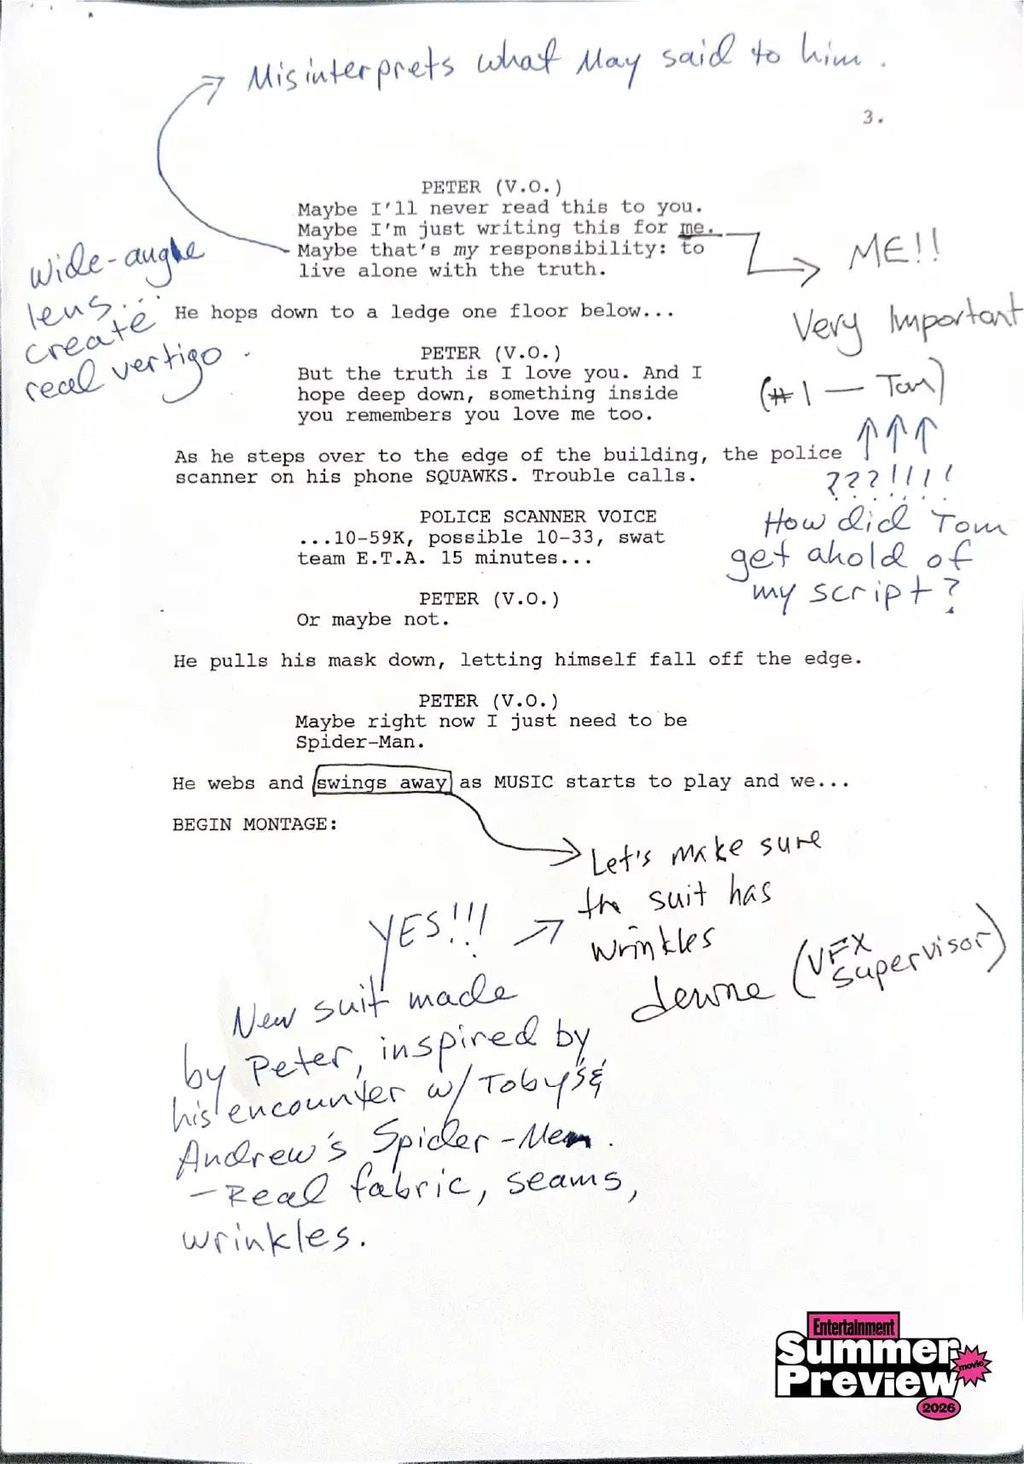 Misinterprets what May said to him.
3.
PETER (V.O.)
Maybe I'll never read this to you.
Maybe I'm just writing this for me.
Maybe that's my responsibility: to
live alone with the truth.
wide-angle
lens...
create
real vertigo.
ME!!
Very Important
(#1 — Tom)
He hops down to a ledge one floor below...
PETER (V.O.)
But the truth is I love you. And I
hope deep down, something inside
you remembers you love me too.
As he steps over to the edge of the building, the police
scanner on his phone SQUAWKS. Trouble calls.
???!!!!
How did Tom
get ahold of
my script?
POLICE SCANNER VOICE
...10-59K, possible 10-33, swat
team E.T.A. 15 minutes...
PETER (V.O.)
Or maybe not.
He pulls his mask down, letting himself fall off the edge.
PETER (V.O.)
Maybe right now I just need to be
Spider-Man.
He webs and swings away as MUSIC starts to play and we...
BEGIN MONTAGE:
Let's make sure
the suit has
wrinkles
(VFX
supervisor)
YES!!!
New suit made
by Peter, inspired by
his encounter w/ Toby's &
Andrew's Spider-Men.
- Real fabric, seams,
wrinkles.
Entertainment
Summer
movie
Preview
2026